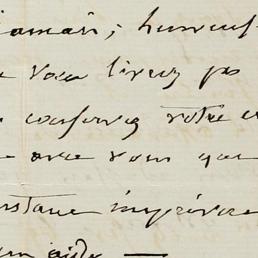 jamais; heureus
vous livrez pas
conservez votre
avec vous que
instance imprévue
en aide —